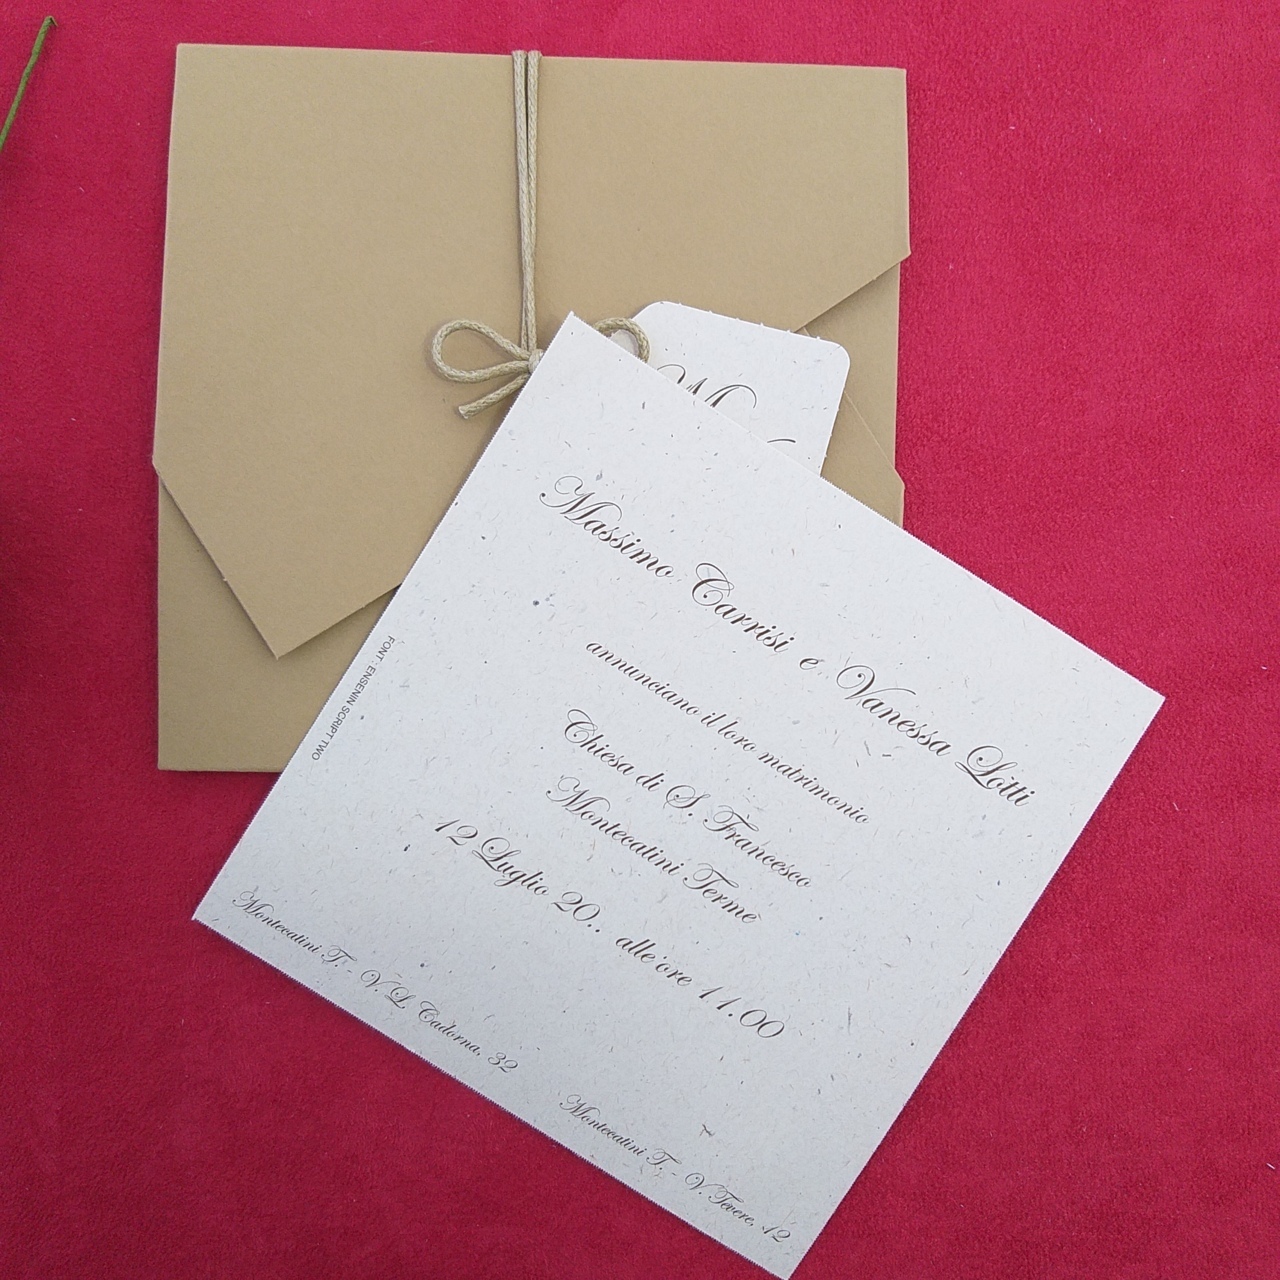 Massimo Carrisi e Vanessa Lotti
annunciano il loro matrimonio
Chiesa di S. Francesco
Montecatini Terme
12 Luglio 20.. alle ore 11.00
Montecatini T. - V. L. Cadorna, 32
Montecatini T. - V. Tevere, 12
FONT: ENSENIN SCRIPT TWO